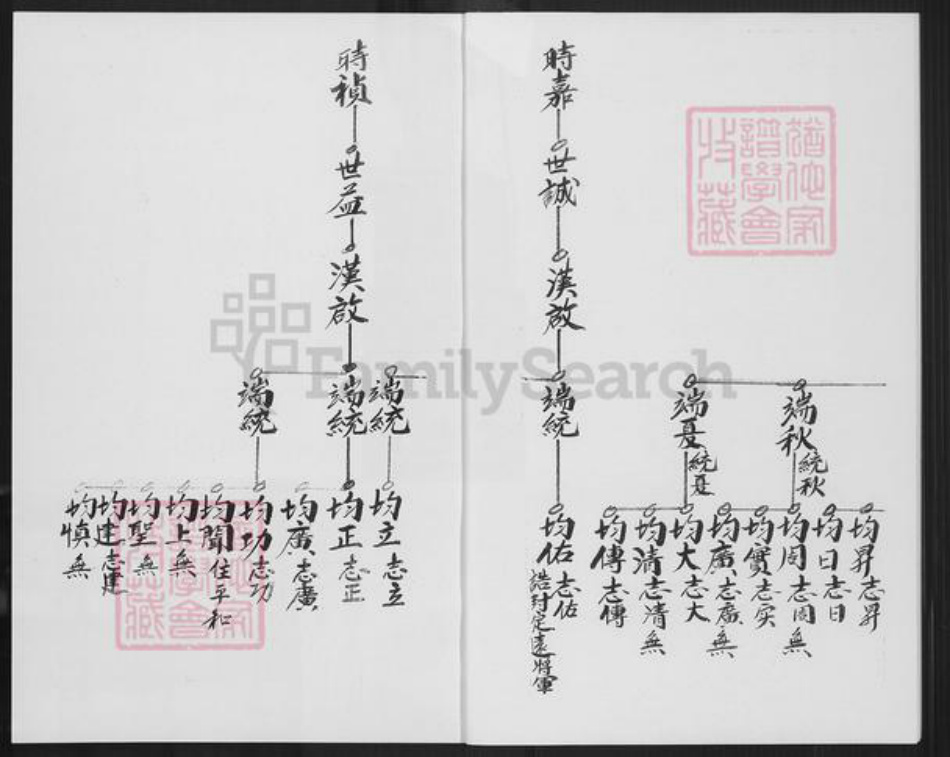 端秋 統秋
均昇 志昇
均日 志日
均周 志周 無
均實 志实
端夏 統夏
均廣 志廣 無
均大 志大
均清 志清 無
均傳 志傳
時嘉
世誠
漢啟
端統
均佑 志佑
誥封定遠將軍
端統
均立 志立
時禎
世益
漢啟
端統
均正 志正
均廣 志廣
端統
均功 志功
均聞 住平和
均上 無
均聖 無
均建 志建
均慎 無
FamilySearch